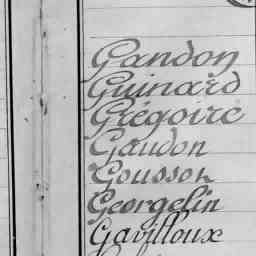 Gandon
Guinard
Grégoire
Gaudon
Gousson
Georgelin
Gavilloux